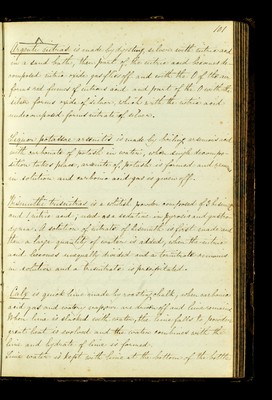 101
Argenti nitras is made by digesting silver with nitric acid
in a sand bath, then part of the nitric acid becomes de-
composed nitric oxide gas flies off and with the O of the air
forms red forms of nitrous acid, and part of the O with the
silver forms oxide of silver, which with the nitric acid
undecomposed forms nitrate of silver.
Liquor potassae arsenitis is made by boiling arsenious acid
with carbonate of potash in water, when single decompo-
sition takes place, arsenite of potash is formed and remains
in solution and carbonic acid gas is given off.
Bismuthi trisnitras is a whitish powder composed of 3 bismuth
and 1 nitric acid, used as a sedative in pyrosis and gastro-
dynia. A solution of nitrate of bismuth is first made and
then a large quantity of water is added, when the nitric
acid becomes unequally divided and a ternitrate remains
in solution and a trisnitrate is precipitated.
Calx or quick lime made by roasting chalk, when carbonic
acid gas and watery vapour are driven off and lime remains.
When lime is slacked with water, the lime falls to powder
great heat is evolved and the water combines with the
lime and hydrate of lime is formed.
Lime water is kept with lime at the bottom of the bottle